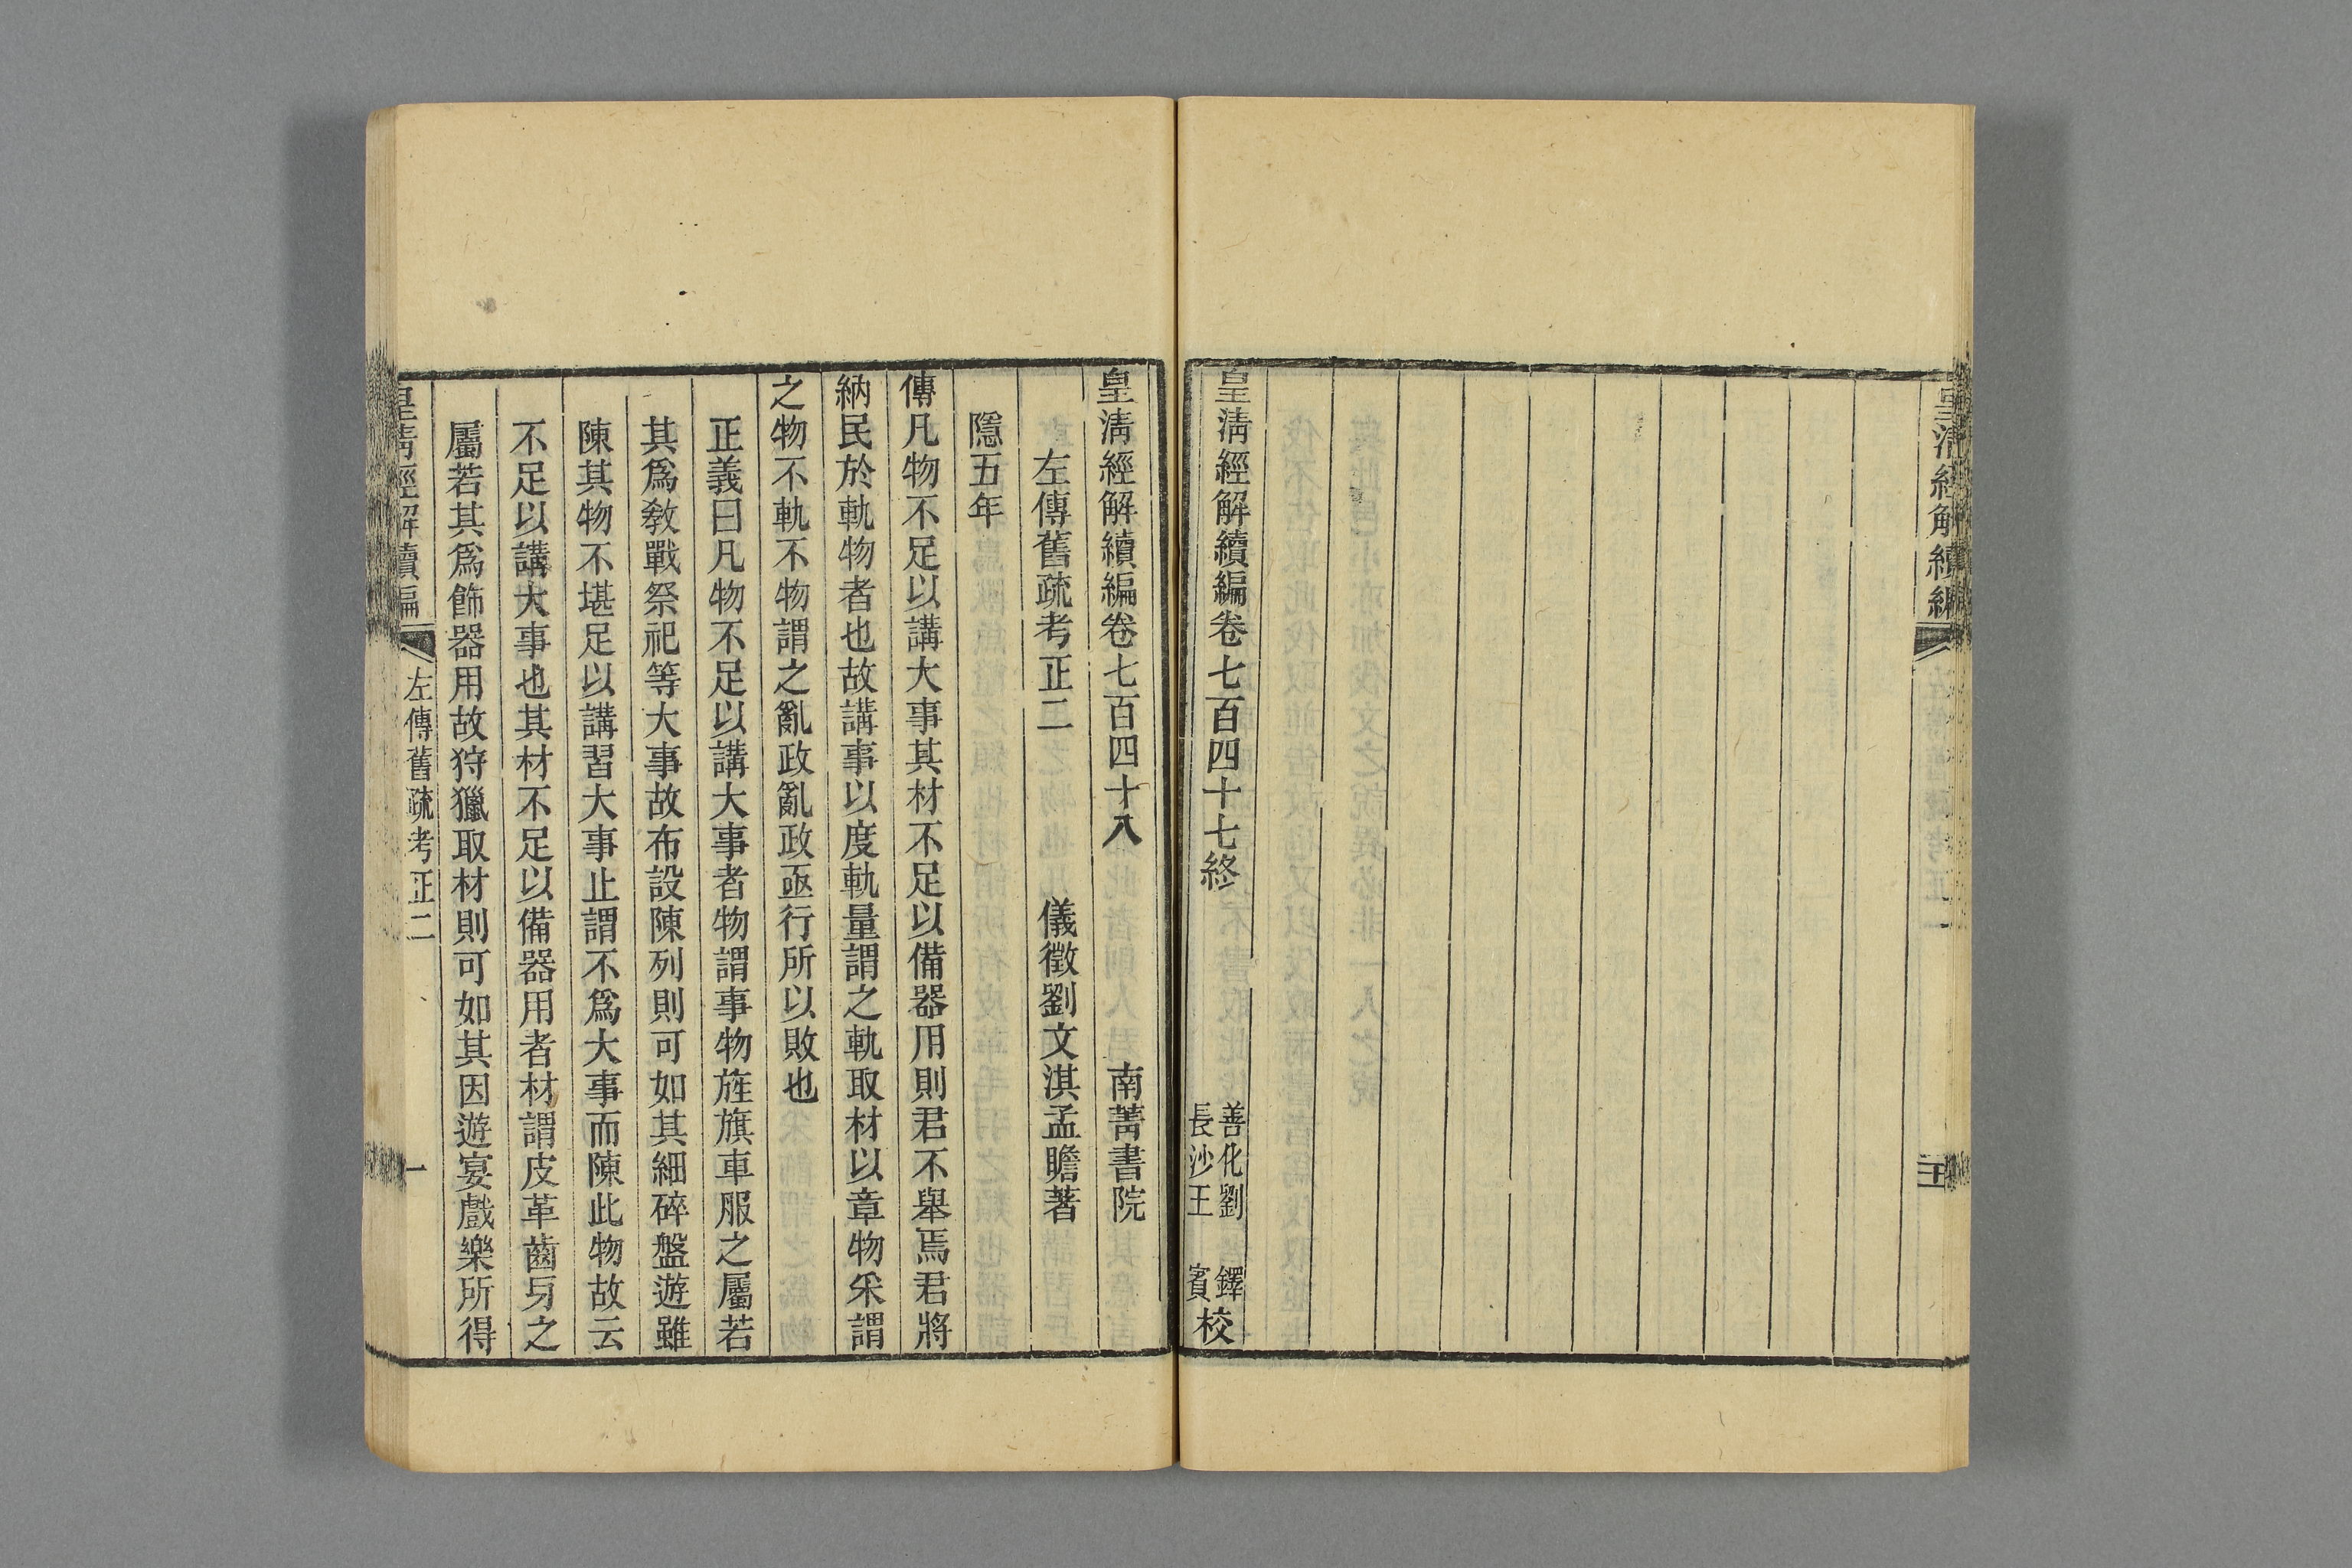 皇清經解續編
皇清經解續編卷七百四十七終
善化劉鐸
長沙王賓
校
皇清經解續編卷七百四十八 南菁書院
左傳舊疏考正二 儀徵劉文淇孟瞻著
隱五年
傳凡物不足以講大事其材不足以備器用則君不舉焉君將
納民於軌物者也故講事以度軌量謂之軌取材以章物采謂
之物不軌不物謂之亂政亂政亟行所以敗也
正義曰凡物不足以講大事者物謂事物旌旗車服之屬若
其爲敎戰祭祀等大事故布設陳列則可如其細碎盤遊雖
陳其物不堪足以講習大事止謂不爲大事而陳此物故云
不足以講大事也其材不足以備器用者材謂皮革齒牙之
屬若其爲飾器用故狩獵取材則可如其因遊宴戲樂所得
皇清經解續編 左傳舊疏考正二 一